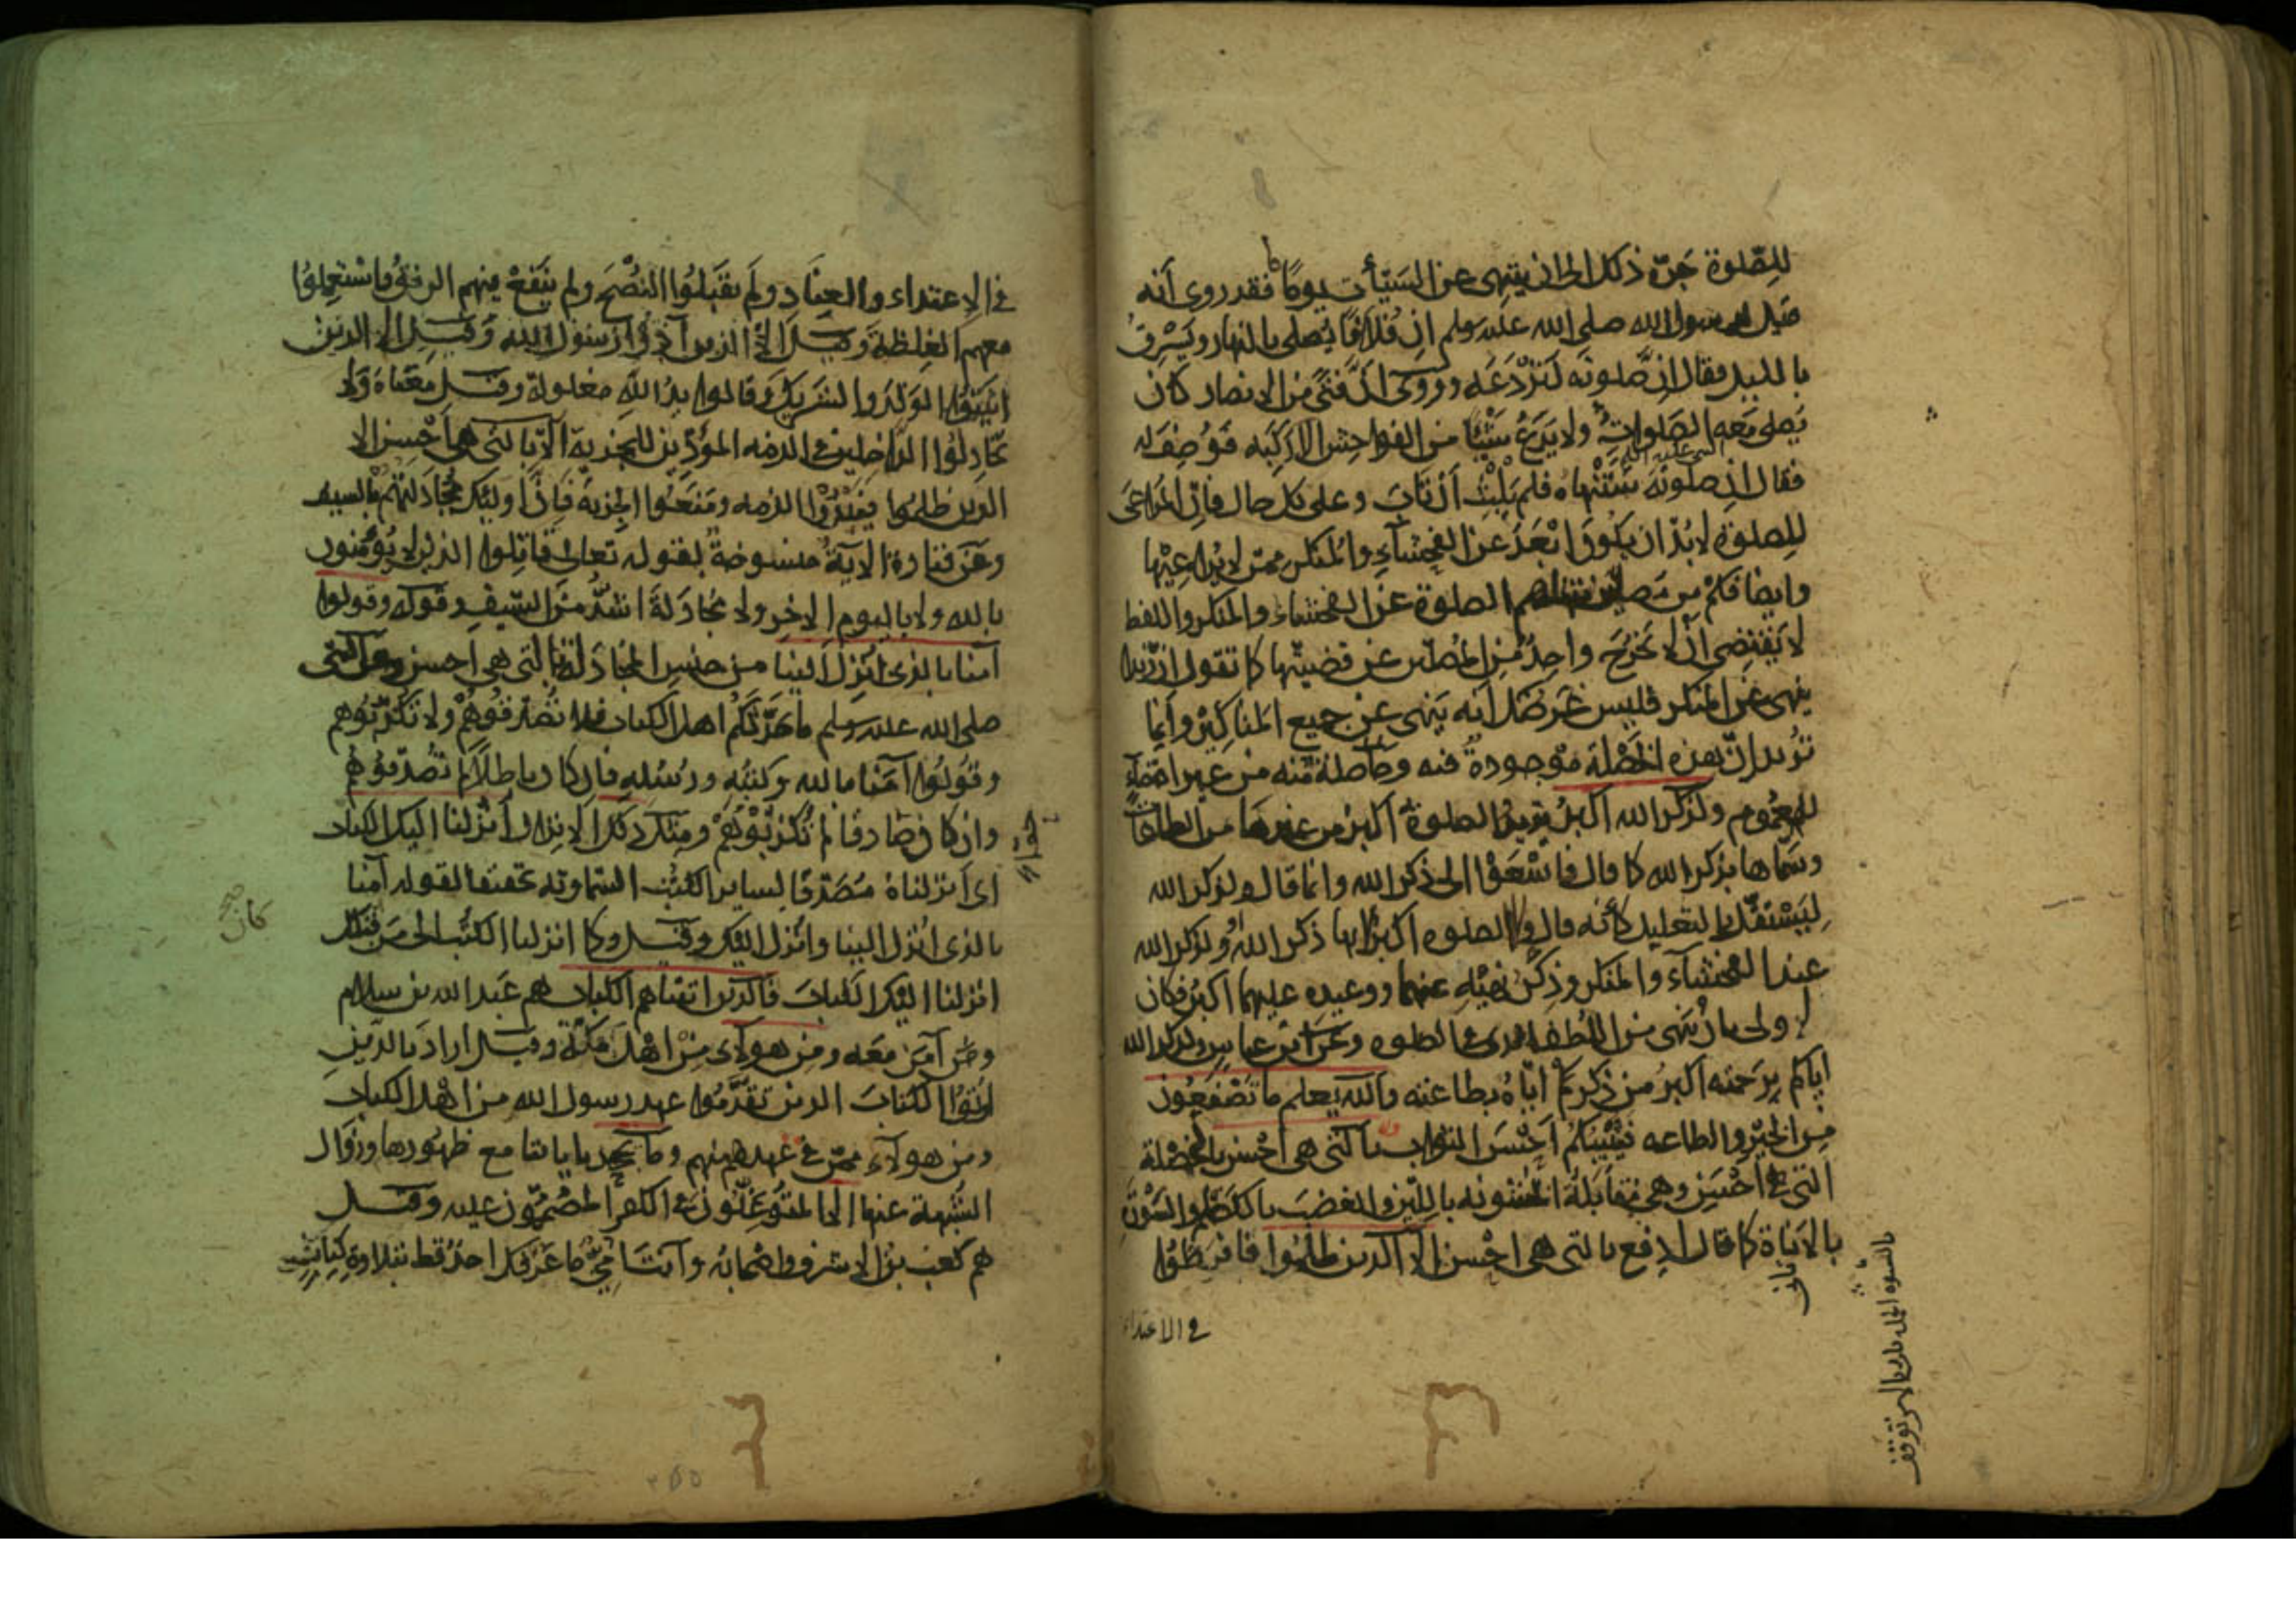 للصّلوة جرّه ذلك الى ان ينتهى عن السيّئات يومًا فقد روى أنه
قيل لرسول الله صلى الله عليه وسلم ان فلانًا يصلى بالنهار ويسرق
بالليل فقال ان صلوته لتردعه وروى انّ فتى من الانصار كان
يصلى معه الصلوات ولا يدع شيئا من الفواحش الا ركبه فوُصف له
فقال ان صلوته ستنهاه فلم يلبث أن تاب وعلى كل حال فانّ المراعى
للصلوة لا بدّ ان يكون ابعد عن الفحشاء والمنكر ممّن لا يراعيها
وايضا فكم من مصلين تنهاهم الصلوة عن الفحشاء والمنكر واللفظ
لا يقتضى أن لا يخرج واحد من المصلين عن قضيتها كما تقول ان زيدا
ينهى عن المنكر فليس غرضك أنه ينهى عن جميع المناكير وانما
تريد ان هذه الخصلة موجودة فيه وحاصلة منه من غير اقتضاء
للعموم ولذكر الله اكبر يريد الصلوة اكبر من غيرها من الطاعات
وسمّاها بذكر الله كما قال فاسعوا الى ذكر الله وانما قال ولذكر الله
ليستقلّ بالتعليل كأنه قال والصلوه اكبر لانها ذكر الله او ولذكر الله
عند الفحشاء والمنكر وذكر نهيه عنهما ووعيده عليهما اكبر فكان
اولى بان ينهى من اللطف الذى فى الصلوه وعن ابن عباس ولذكر الله
اياكم برحمته اكبر من ذكركم ايّاه بطاعته والله يعلم ما تصنعون
من الخير والطاعه فيثيبكم احسن الثواب بالتى هى احسن بالخصلة
التى هى احسن وهى مقابلة الخشونه باللين والغضب بالكظم والسورة
بالاناة كما قال ادفع بالتى هى احسن الا الذين ظلموا فافرطوا
فى الاعتداء
فى الاعتداء والعناد ولم يقبلوا النصح ولم ينفع فيهم الرفق فاستعملوا
معهم الغلظة وقيل الا الذين آذوا رسول الله وقيل الا الذين
اثبتوا الولد والشريك وقالوا يد الله مغلولة وقيل معناه ولا
تجادلوا الداخلين فى الذمه المؤدّين للجزية الا بالتى هى احسن الا
الذين ظلموا فنبذوا الذمه ومنعوا الجزية فان اوليك مجادلتهم بالسيف
وعن قتادة الآية منسوخة بقوله تعالى قاتلوا الذين لا يؤمنون
بالله ولا باليوم الاخر ولا مجادلة اشدّ من السيف وقوله وقولوا
آمنا بالذى انزل الينا من جنس المجادلة بالتى هى احسن وعن النبى
صلى الله عليه وسلم ما حدّثكم اهل الكتاب فلا تصدّقوهم ولا تكذّبوهم
وقولوا آمنا بالله وكتبه ورسله فان كان باطلا لم تصدّقوهم
وان كان صادقا لم تكذّبوهم ومثل ذلك الانزال أنزلنا اليك الكتاب
اى أنزلناه مصدّقا لساير الكتب السماوية تحقيقا لقوله آمنا
بالذى انزل الينا وانزل اليكم وقيل وكما انزلنا الكتب الى من قبلك
كان صح
انزلنا اليك الكتاب فالذين اتيناهم الكتاب هم عبد الله بن سلام
ومن آمن معه ومن هولاء من اهل مكة وقيل اراد بالذين
اوتوا الكتاب الذين تقدّموا عهد رسول الله من اهل الكتاب
ومن هولاء ممّن فى عهده منهم وما يجحد بآياتنا مع ظهورها وزوال
الشبهة عنها الا المتوغّلون فى الكفر المصمّمون عليه وقيل
هم كعب بن الاشرف واصحابه وآنت امّى ما عرفك احد قط بتلاوة كتاب